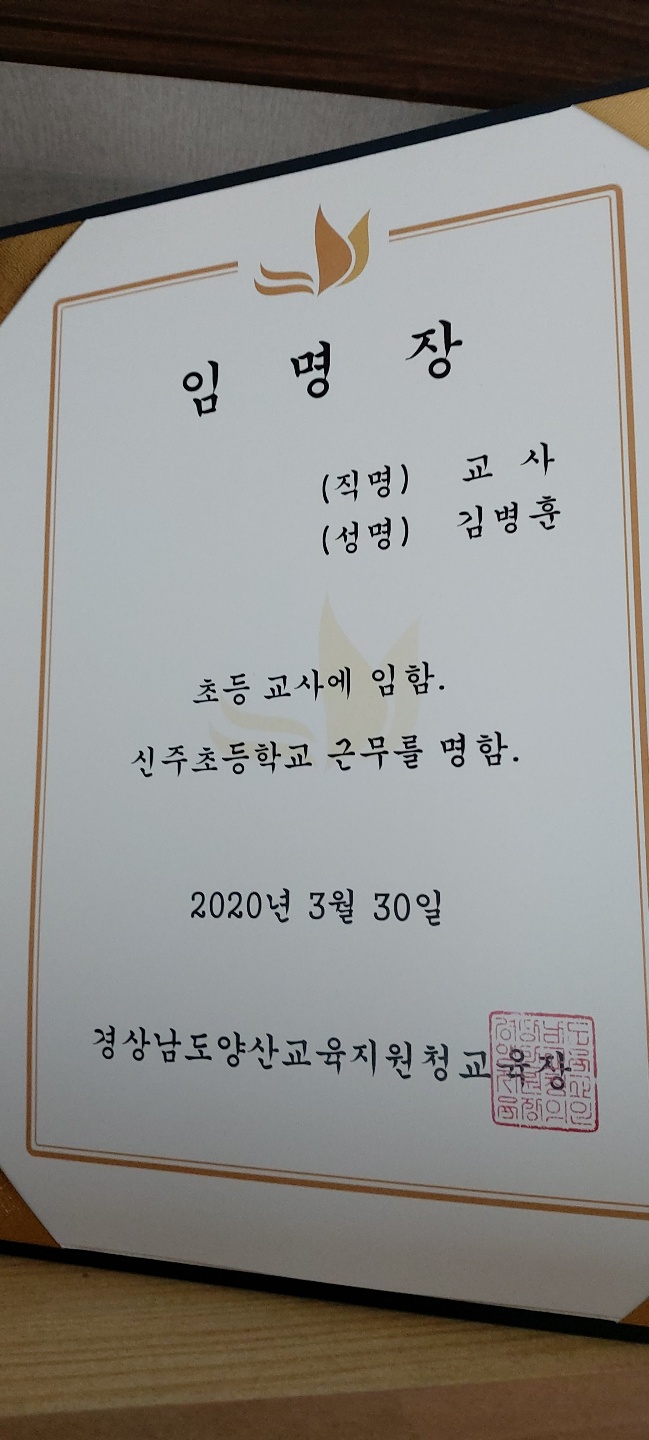 임 명 장
(직명) 교 사
(성명) 김병훈
초등 교사에 임함.
신주초등학교 근무를 명함.
2020년 3월 30일
경상남도양산교육지원청교육장